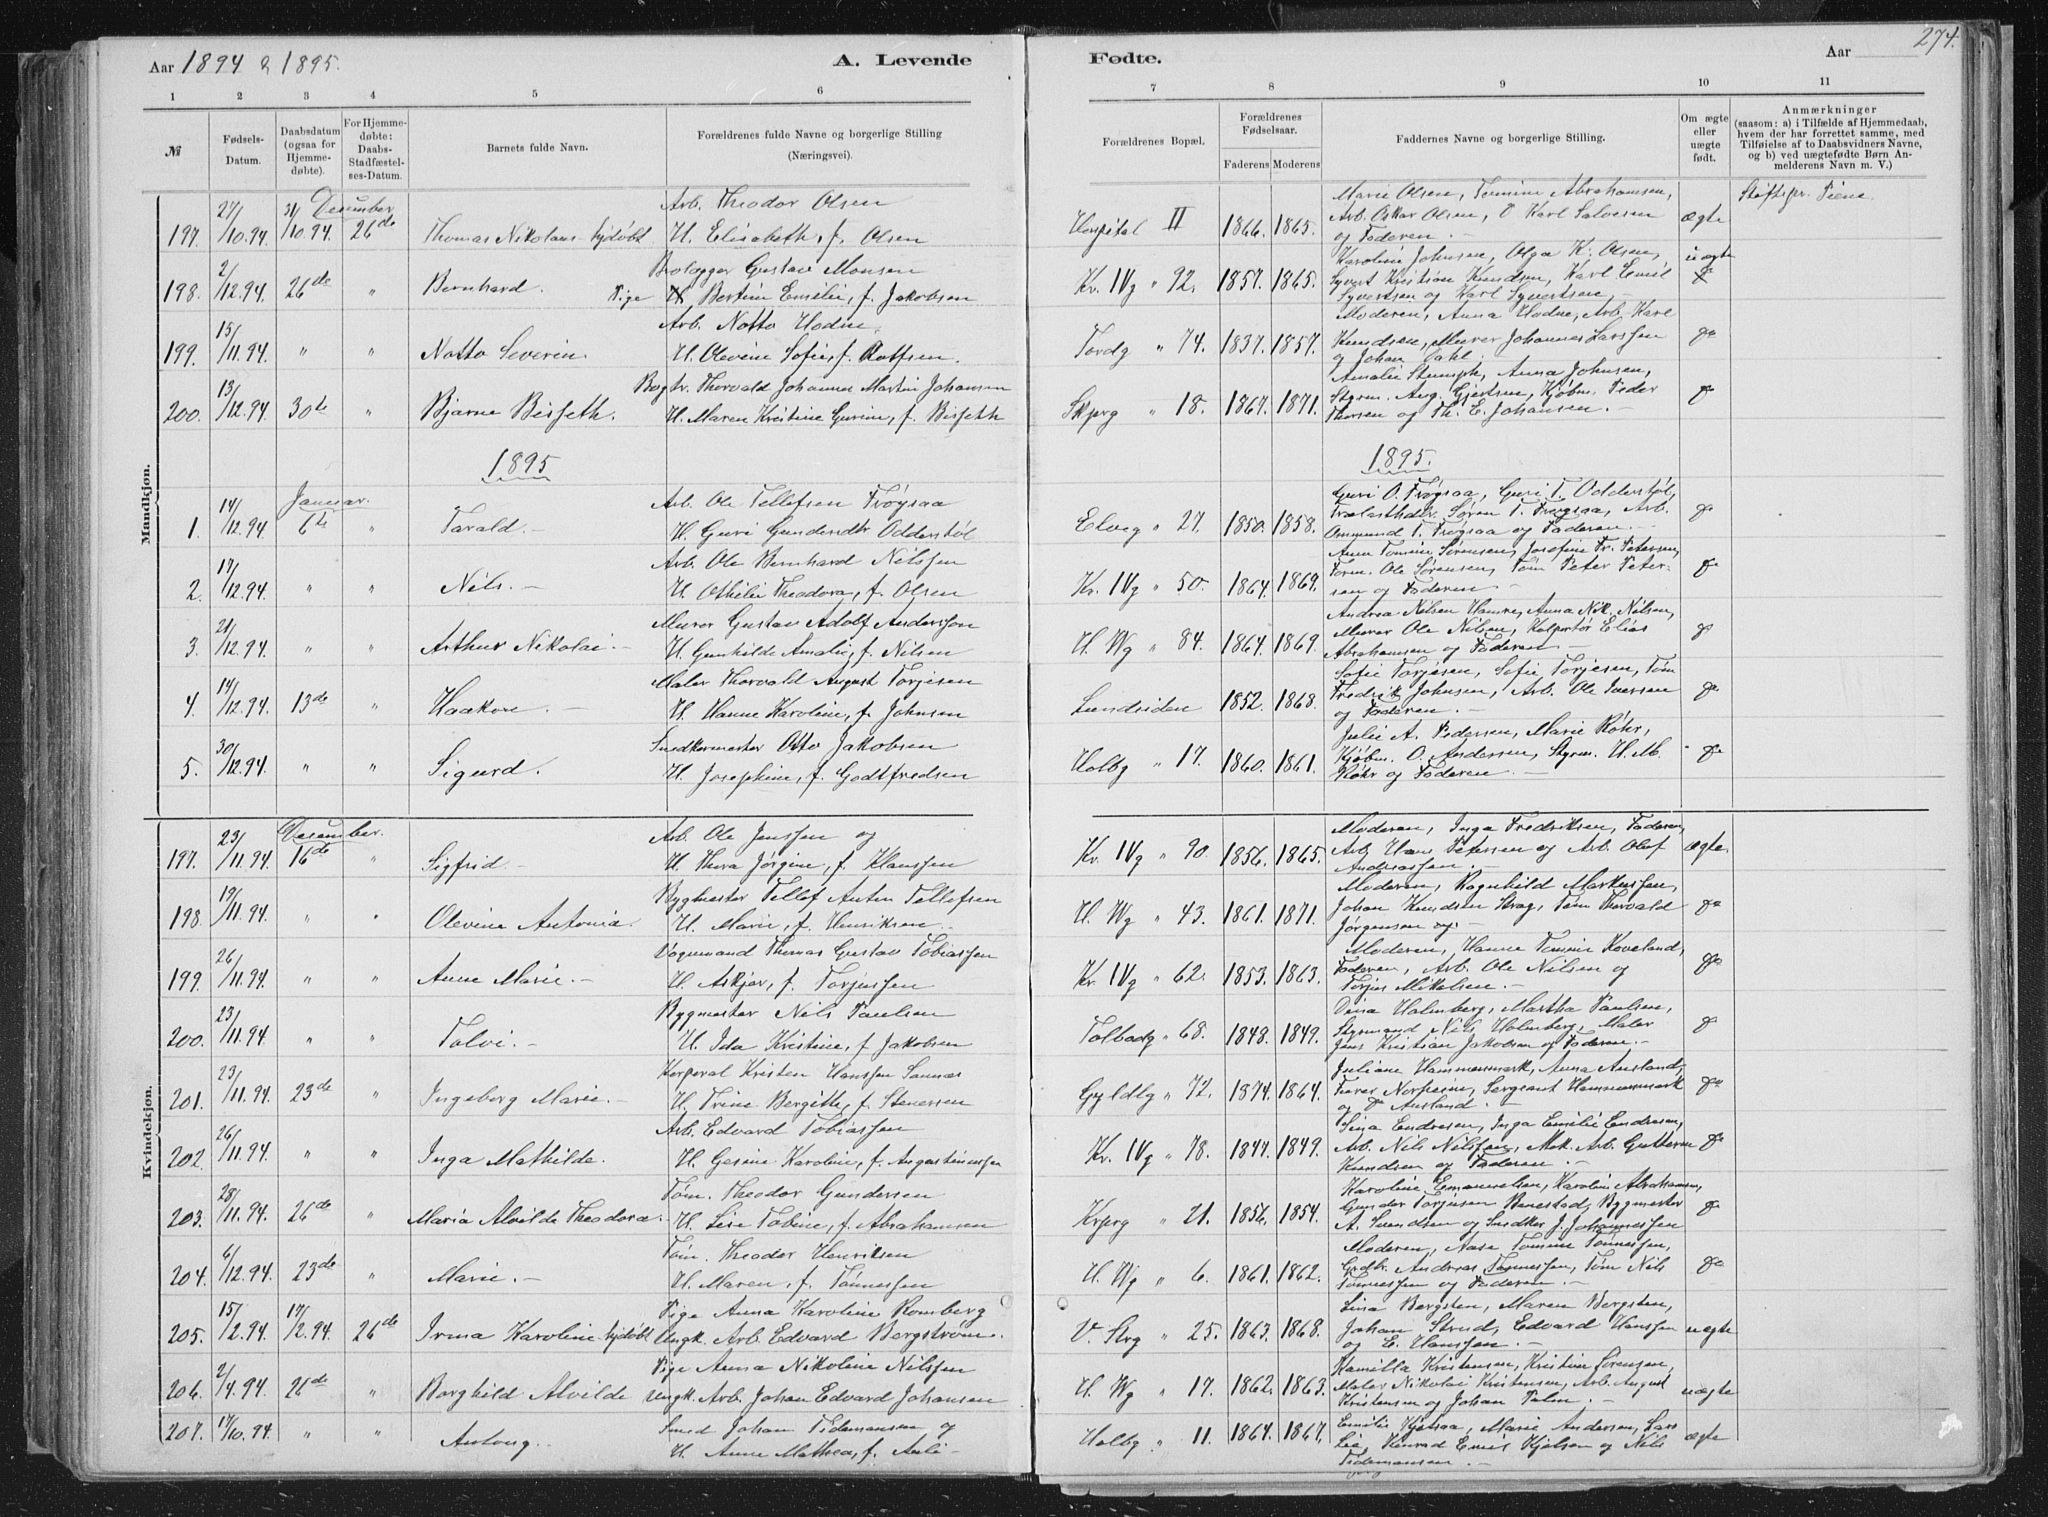 Aar 1894 & 1895.
A. Levende
Fødte.
Aar
274.
1 2 3 4 5 6 7 8 9 10 11
№
Fødsels-Datum.
Daabsdatum (ogsaa for Hjemmedøbte).
For Hjemmedøbte: Daabs-Stadfæstelses-Datum.
Barnets fulde Navn.
Forældrenes fulde Navne og borgerlige Stilling (Næringsvei).
Forældrenes Bopæl.
Forældrenes Fødselsaar.
Faderens Moderens
Faddernes Navne og borgerlige Stilling.
Om ægte eller uægte født.
Anmærkninger
(saasom: a) i Tilfælde af Hjemmedaab, hvem der har forrettet samme, med Tilføielse af to Daabsvidners Navne, og b) ved uægtefødte Børn Anmelderens Navn m. V.)
Mandkjøn.
December
197. 27/10.94. 31/10.94. 26de Thomas Nikolaus hjdøbt
Arb. Theodor Olsen
H. Elisabeth, f. Olsen
Hospital II 1866. 1865.
Marie Olsen, Tomine Abrahamsen,
Arb. Oskar Olsen, Karl Salvesen
og Faderen. ægte
Stiftspr. Tiene
198. 2/12.94. 26de " Bernhard.
Brolægger Gustav Monsen
Pige Bertine Emilie, f. Jakobsen
Kr. IVg " 92. 1857. 1865.
Karoline Johnsen, Olga K. Olsen,
Syvert Kristian Knudsen, Karl Emil
Syvertsen og Karl Syvertsen. uægte
199. 15/11.94. " " Notto Severin.
Arb. Notto Hodne.
H. Olevine Sofie, f. Rolfsen.
Tordg " 74. 1837. 1857.
Moderen, Anna Hodne, Arb. Karl
Knudsen, Murer Johannes Larssen
og Johan Dahl. do
200. 13/12.94. 30te " Bjarne Bisseth.
Bogtr. Thorvald Johannes Martin Johansen
H. Maren Kristine Gurine, f. Bisseth
Skprg " 18. 1867. 1871.
Amalie Stumph, Anna Johnsen,
Styrm. Aug. Gjertsen, Kjøbm. Peder
Thorsen og Th. E. Johansen. do
1895
1895.
Januar.
1. 14/12.94. 6te " Tarald.
Arb. Ole Tellefsen Frøysaa
H. Guri Gundersdtr Odderstøl
Elveg " 27. 1850. 1858.
Guri O. Frøysaa, Guri T. Odderstøl,
Trælasthdlr. Søren T. Frøysaa, Arb.
Ommund T. Frøysaa og Faderen. do
2. 17/12.94. " " Nils.
Arb. Ole Bernhard Nilssen
H. Othilie Theodora, f. Olsen
Kr. IVg " 50. 1864. 1869.
Anna Tomine Sørensen, Josefine Fr. Petersen,
Form. Ole Sørensen, Tøm Peter Petersen
og Faderen. do
3. 21/12.94. " " Arthur Nikolai.
Murer Gustav Adolf Anderssen
H. Gunhilde Amalie, f. Nilsen
H. Wg " 84. 1864. 1869.
Andrea Nilsen Hamre, Anna Nik. Nilsen,
Murer Ole Nilsen, Kolportør Elias
Abrahamsen og Faderen do
4. 14/12.94. 13de " Haakon.
Maler Thorvald August Torjesen
H. Hanne Karoline, f. Johnsen
Lundsiden 1852. 1868.
Sofie Torjesen, Sofie Torjesen, Tøm
Fredrik Johnsen, Arb. Ole Iversen
og Faderen. do
5. 30/12.94. " " Sigurd.
Snedkermester Otto Jakobsen
H. Josephine, f. Godtfredsen
Holbg " 17. 1860. 1861.
Julie A. Pedersen, Marie Røhr,
Kjøbm. O. Andersen, Styrm. H. M.
Røhr og Faderen. do
Kvindekjøn.
December.
197. 23/11.94. 16de " Sigfrid
Arb. Ole Jenssen og
H. Thora Jørgine, f. Klanssen
Kr. IVg " 90. 1856. 1865.
Moderen, Inga Fredriksen, Faderen,
Arb. Hans Petersen og Arb. Oluf
Andreassen. ægte.
198. 19/11.94. " " Olevine Antonia.
Bygmester Tellef Anton Tellefsen
H. Marie, f. Henriksen
H. Wg " 43. 1861. 1871.
Moderen, Ragnhild Markussen,
Johan Knudsen Krag, Tøm Thorvald
Jørgensen og. do
199. 26/11.94. " " Anne Marie.
Vognmand Thomas Gustav Tobiassen
H. Askjer, f. Torjussen
Kr. IVg " 62. 1853. 1863.
Moderen, Hanne Tomine Koveland,
Faderen, Arb. Ole Nilsen og
Torjus Mikalsen. do
200. 23/11.94. " " Tolvi.
Bygmester Nils Paulsen
H. Ida Kristine, f. Jakobsen
Tolbodg " 68. 1848. 1849.
Dina Holmberg, Martha Paulsen,
Styrmand Nils Holmberg, Maler
Jens Kristian Jakobsen og Faderen. do
201. 23/11.94. 23de " Ingeborg Marie.
Korporal Kristen Hanssen Sannæs
H. Trine Bergitte, f. Stenersen
Gyldlg " 72. 1874. 1864.
Juliane Hammersmark, Anna Ausland,
Furer Norheim, Sergeant Hammersmark
og do Ausland. do
202. 26/11.94. " " Inga Mathilde.
Arb. Edvard Tobiassen
H. Gesine Karoline, f. Augustinussen
Kr. IVg " 78. 1847. 1849.
Sina Endresen, Inga Emilie Endresen,
Arb. Nils Nilssen, Mek. Arb. Guttorm
Knudsen og Faderen. do
203. 28/11.94. 26de " Maria Alvilde Theodora.
Tøm. Theodor Gundersen
H. Lise Tobine, f. Abrahamsen
Krprg " 21. 1856. 1854.
Karoline Emanuelsen, Karoline Abrahamsen,
Gunder Torjusen Benestad, Bygmester
A. Svendsen og Snedker J. Johannessen do
204. 6/12.94. 23de " Marie.
Tøm. Theodor Henriksen
H. Maren, f. Tønnessen
H. Wg " 6. 1861. 1862.
Moderen, Aase Tomine Tønnessen,
Grdb. Andreas Tønnessen, Tøm Nils
Tønnessen og Faderen. do
205. 15/2.94. 17/2.94. 26de Irma Karoline hjdøbt
Pige Anna Karoline Romberg
Ungk. Arb Edvard Bergstrøm.
V. Strg " 25. 1863. 1868.
Lina Bergsten, Maren Bergsten,
Johan Strud, Edvard Hanssen
og E. Hanssen. uægte
206. 2/4.94. 26de " Borghild Alvilde
Pige Anna Nikoline Nilssen
Ungk. Arb. Johan Edvard Johansen
H. Wg " 17. 1862. 1863.
Kamilla Kristensen, Kristine Sørensen,
Maler Nikolai Kristensen, Arb. August
Kristensen og Johan Palm. uægte
207. 17/10.94. " " Antong.
Smed Johan Tidemansen og
H. Anne Mathea, f. Auli
Holbg " 11. 1864. 1867.
Emilie Kjelsaa, Marie Andersen, Lars
Lie, Konrad Emil Kjelsen og Nils
Tidemansen. ægte